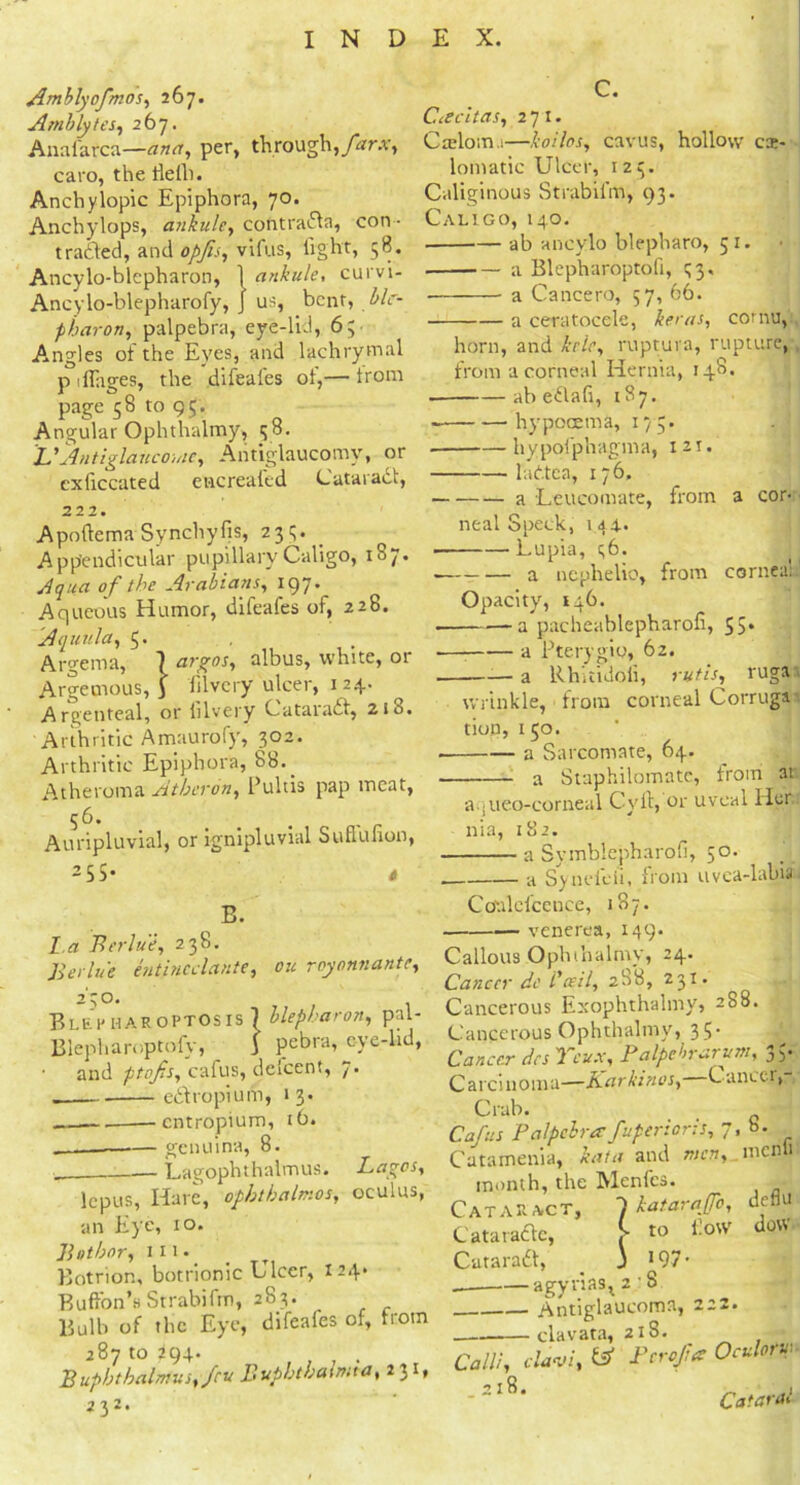 INDEX.
Amblyoſmos, 267.
Amblytes, 267.
Anaſarca—ana, per, through, ſarx,
caro, the fleſh.
Anchylopic Epiphora, 70.
Anchylops, ankule, contracta, con-
tracted, and opſis, viſus, ſight, 58.
Ancylo-blepharon, } ankule, curvi-
Ancylo-blepharoſy, } us, bent, ble-
pharon, palpebra, eye-lid, 65
Angles of the Eyes, and lachrymal
paſſages, the diſeaſes of,—from
page 58 to 95.
Angular Ophthalmy, 58.
L'Antiglaucome, Antiglaucomy, or
exſiccated encreaſed Cataract,
222.
Apoſtema Synchyſis, 235.
Appendicular pupillary Caligo, 187.
Aqua of the Arabians, 197.
Aqueous Humor, diſeaſes of, 228.
Aquula, 5.
Argema, } argos, albus, white, or
Argemous, } ſilvery ulcer, 124.
Argenteal, or ſilvery Cataract, 218.
Arthritic Amauroſy, 302.
Arthritic Epiphora, 88.
Atheroma Atheron, Pultis pap meat,
56.
Auripluvial, or ignipluvial Suffuſion,
255.
B.
La Berlue, 238.
Berlue etincelante, ou rayonnante,
250.
BLEPHAROPTOSIS } blepharon, pal-
Blepharoptoſy, } pebra, eye-lid,
and ptoſis, caſus, deſcent, 7.
—— ectropium, 13.
—— entropium, 16.
—— genuina, 8.
—— Lagophthalmus. Lagos,
lepus, Hare, ophthalmos, oculus,
an Eye, 10.
Bothor, 111.
Botrion, botrionic Ulcer, 124.
Buffon's Strabiſm, 283.
Bulb of the Eye, diſeaſes of, from
287 to 294.
Buphthalmus, ſeu Buphthalmia, 231,
232.
C.
Cæcitas, 271.
Cæloma—koilos, cavus, hollow cæ-
lomatic Ulcer, 125.
Caliginous Strabiſm, 93.
CALIGO, 140.
—— ab ancylo blepharo, 51.
—— a Blepharoptoſi, 53.
—— a Cancero, 57, 66.
—— a ceratocele, keras, cornu,
horn, and kele, ruptura, rupture,
from a corneal Hernia, 148.
—— ab ectaſi, 187.
—— hypoœma, 175.
—— hypoſphagma, 121.
—— lactea, 176.
—— a Leucomate, from a cor-
neal Speck, 144.
—— Lupia, 56.
—— a nephelio, from corneal
Opacity, 146.
—— a pacheablepharoſi, 55.
—— a Pterygio, 62.
—— a Rhitidoſi, rutis, ruga
wrinkle, from corneal Corruga
tion, 150.
—— a Sarcomate, 64.
—— a Staphilomate, from an
aqueo-corneal Cyſt, or uveal Her
nia, 182.
—— a Symblepharoſi, 50.
—— a Syneſeii, from uvea-labia
Coaleſcence, 187.
—— venerea, 149.
Callous Ophthalmy, 24.
Cancer de l'œil, 288, 231.
Cancerous Exophthalmy, 288.
Cancerous Ophthalmy, 35.
Cancer des Yeux, Palpebrarum, 35.
Carcinoma—Karkinos,—Cancer,-
Crab.
Caſus Palpebræ ſuperioris, 7, 8.
Catamenia, kata and men, menſi
month, the Menſes.
CATARACT, } kataraſſo, deflu
Cataracte, } to flow dow
Cataract, } 197.
—— agyrias, 218
—— Antiglaucoma, 222.
—— clavata, 218.
Calli, clavi, & Peroſiæ Oculoru
218.
Catarac